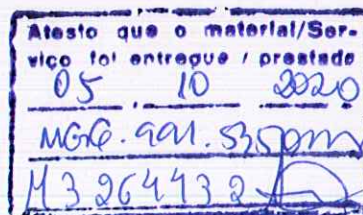 Atesto que o material/Ser-
viço foi entregue / prestado
05 10 2020
M3.264432-